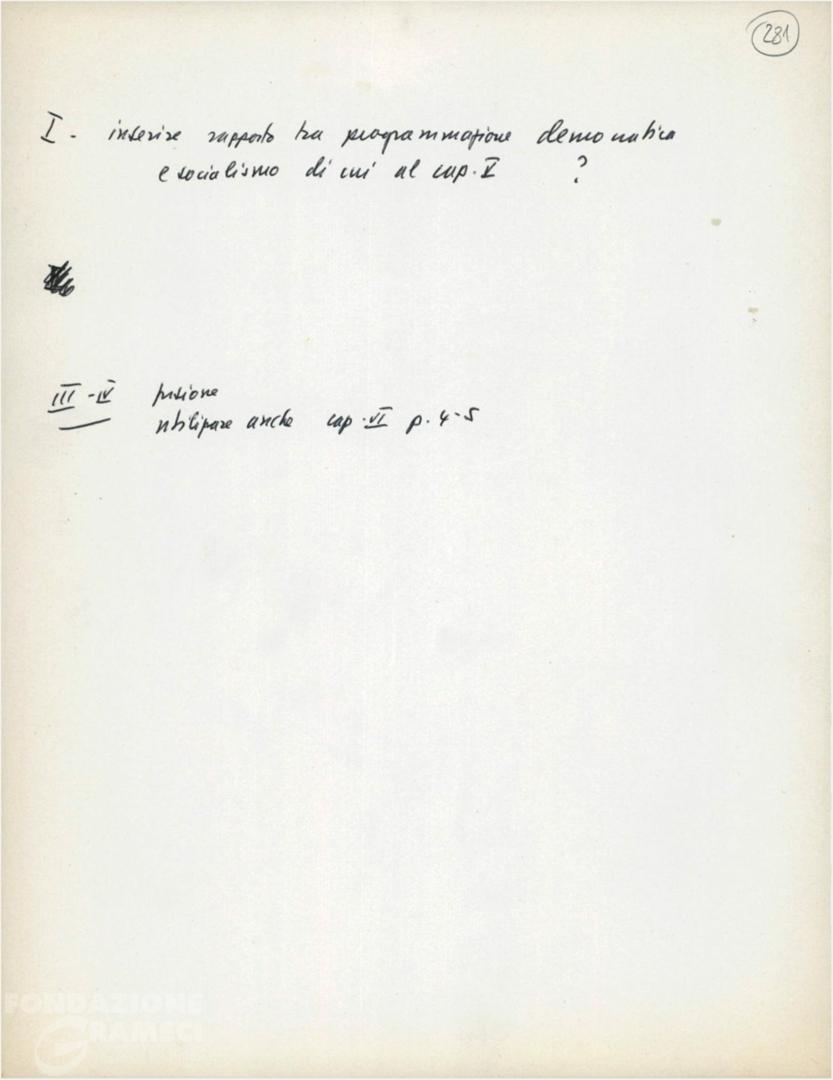 281
I - inserire rapporto tra programmazione democratica
e socialismo di cui al cap. V ?
III - IV fusione
utilizzare anche cap. VI p. 4-5
FONDAZIONE
GRAMSCI